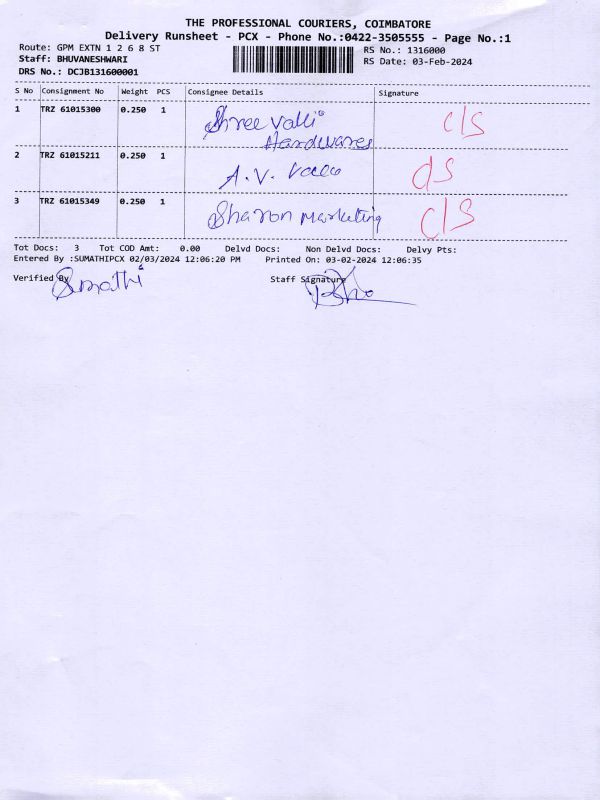 THE PROFESSIONAL COURIERS, COIMBATORE
Delivery Runsheet - PCX - Phone No.:0422-3505555 - Page No.:1
Route: GPM EXTN 1 2 6 8 ST
RS No.: 1316000
Staff: BHUVANESHWARI
RS Date: 03-Feb-2024
DRS No.: DCJB131600001
S No Consignment No Weight PCS Consignee Details Signature
1 TRZ 61015300 0.250 1 Shree Valli Hardwares C/S
2 TRZ 61015211 0.250 1 A.V. C/S
3 TRZ 61015349 0.250 1 Sharon Marketing C/S
Tot Docs: 3 Tot COD Amt: 0.00 Delvd Docs: Non Delvd Docs: Delvy Pts:
Entered By :SUMATHIPCX 02/03/2024 12:06:20 PM Printed On: 03-02-2024 12:06:35
Verified By Sumathi Staff Signature